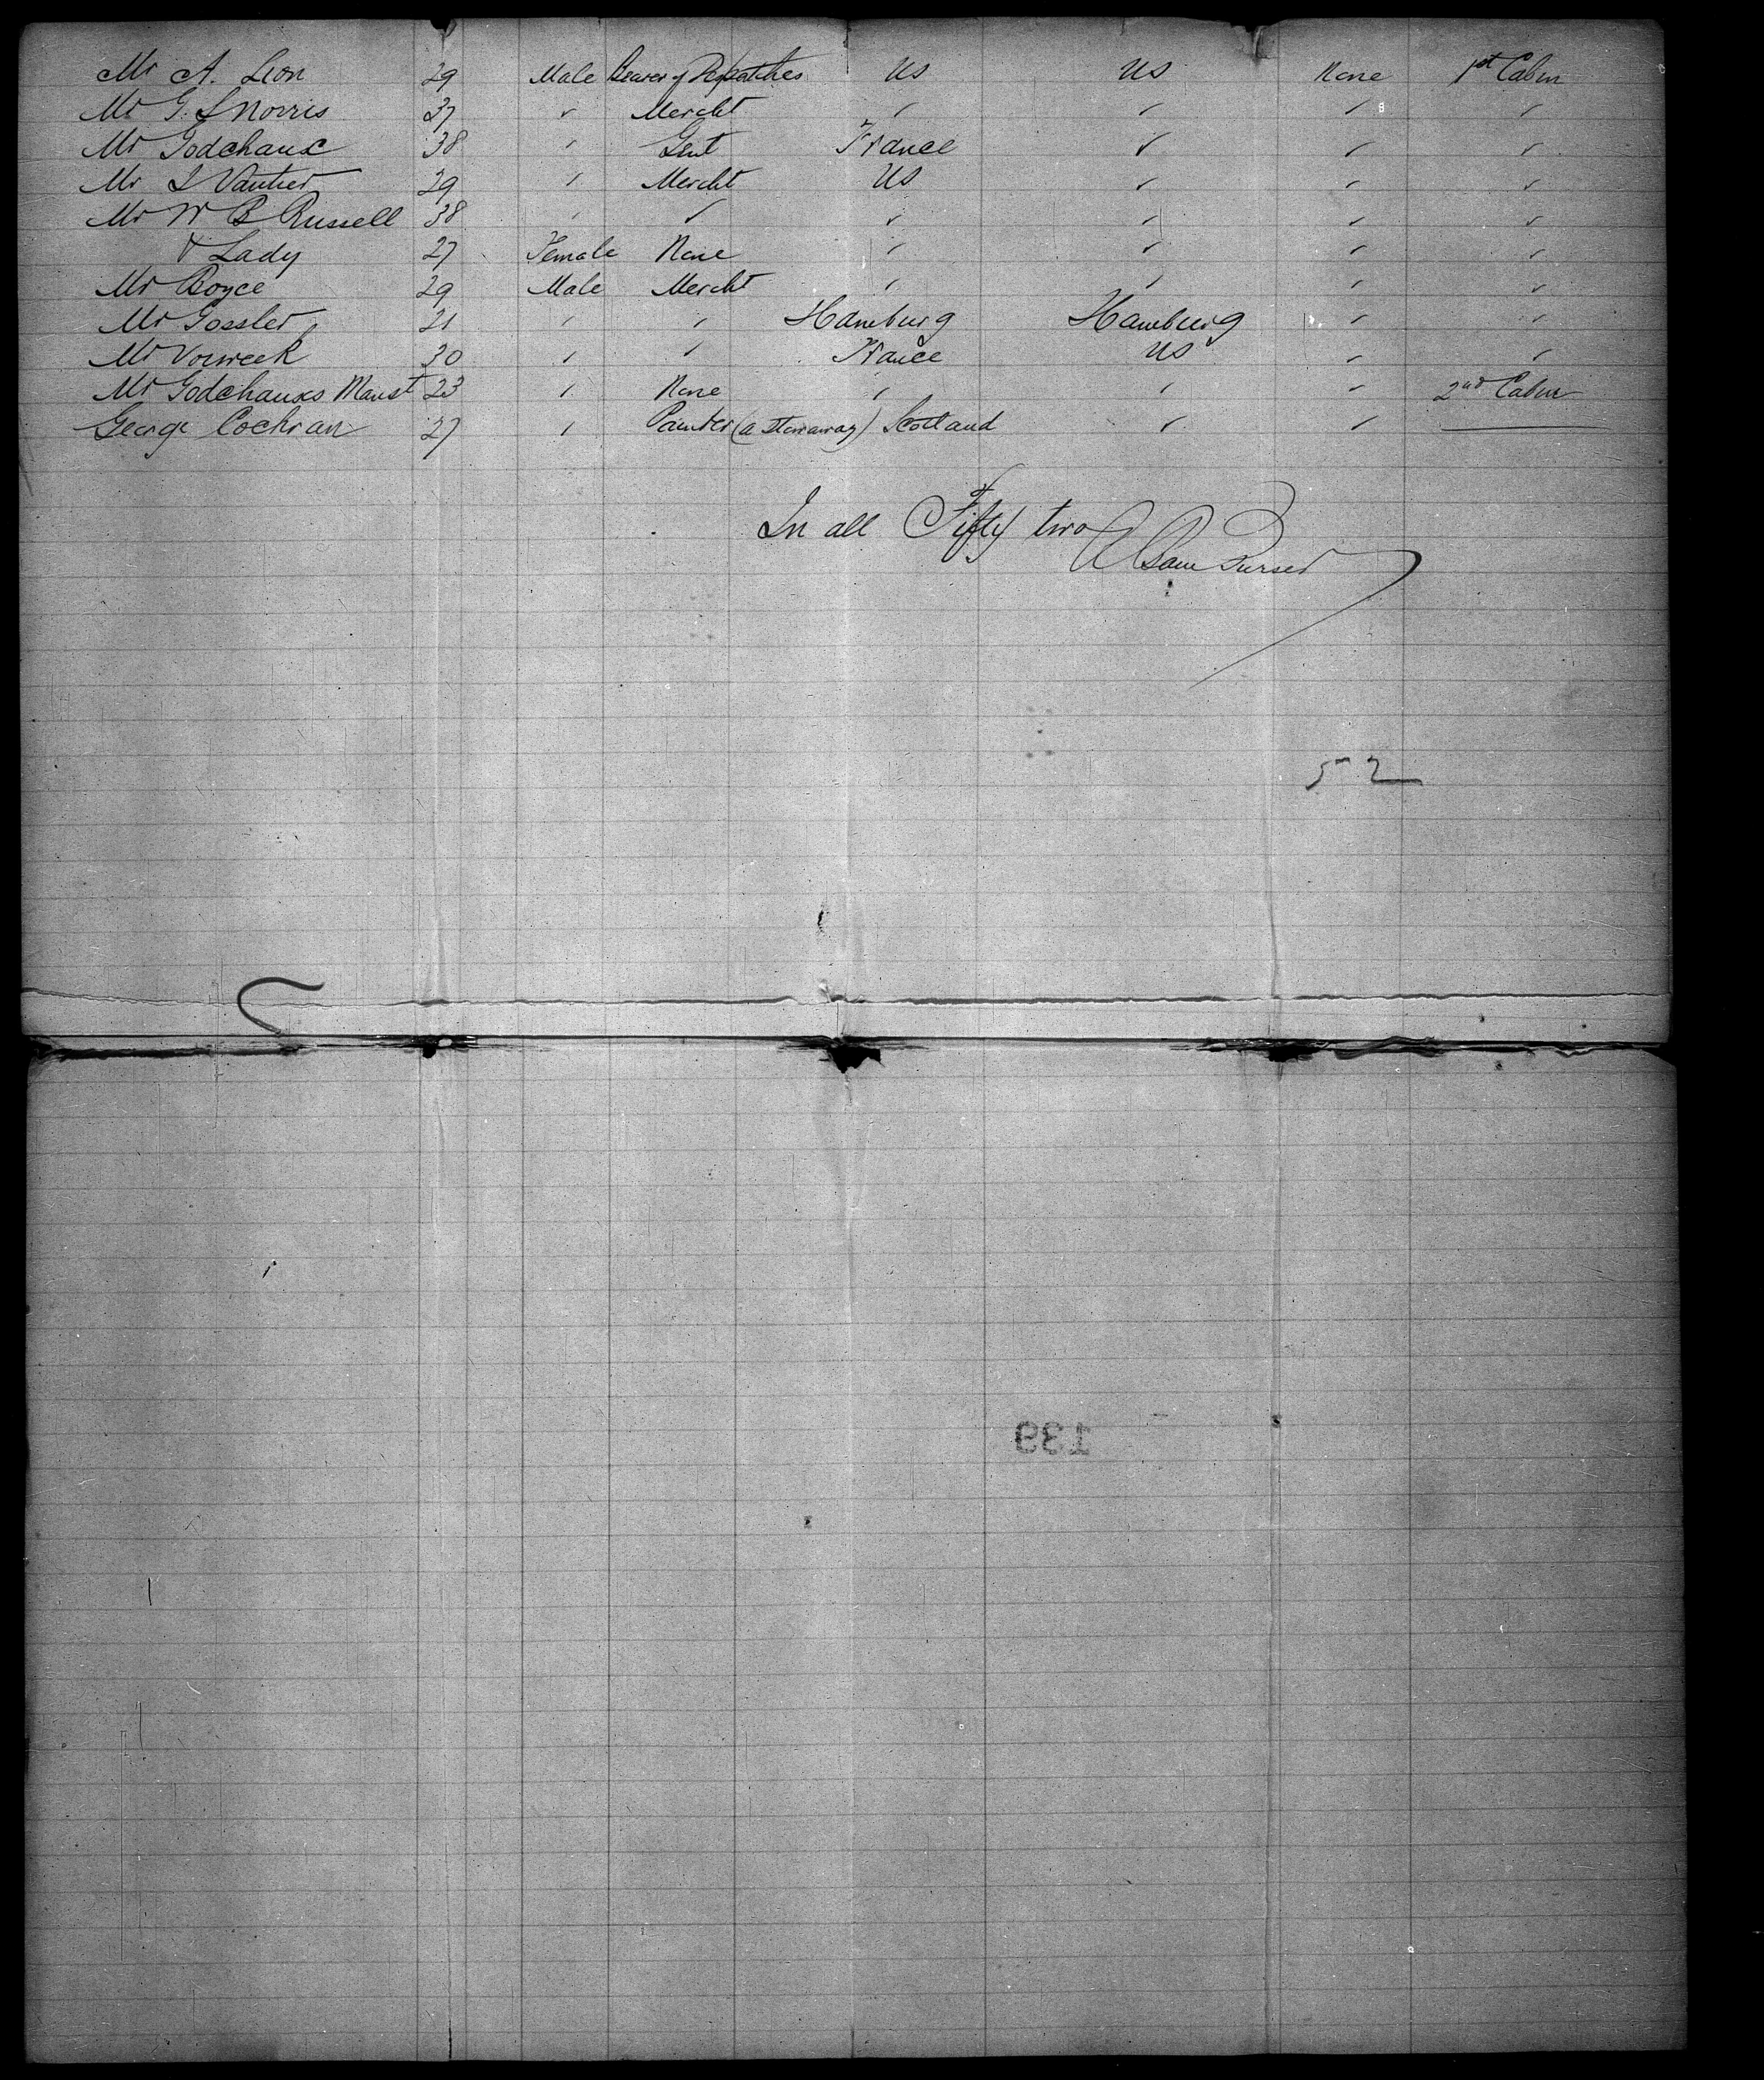 Mr A. Leon 29 Male Bearer of Despatches US US None 1st Cabin
Mr G. S Morris 37 " Mercht " " " "
Mr Godchaux 38 " Gent France " " "
Mr L Vautier 29 " Mercht US " " "
Mr W B Russell 38 " " " " " "
& Lady 27 Female None " " " "
Mr Boyce 29 Male Mercht " " " "
Mr Gossler 21 " " Hamburg Hamburg " "
Mr Vorweek 30 " " France US " "
Mr Godchauxs 23 " None " " " 2nd Cabin
George Cochran 27 " Painter (a stowaway) Scotland " "
In all Fifty two
Purser
52
139